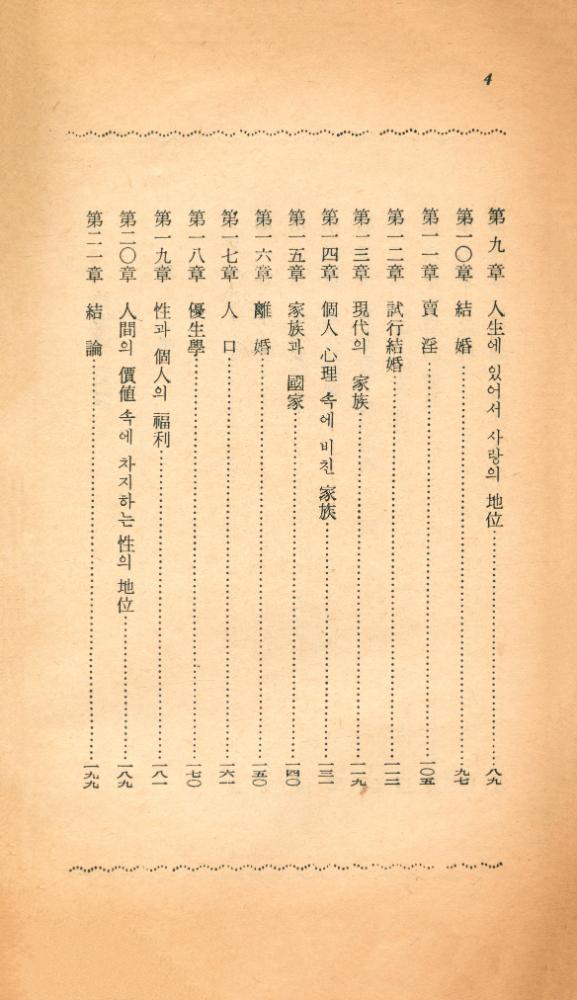 4
第九章 人生에 있어서 사랑의 地位 八九
第一〇章 結婚 九七
第一一章 賣淫 一〇五
第一二章 試行結婚 一一二
第一三章 現代의 家族 一一九
第一四章 個人 心理 속에 비친 家族 一三一
第一五章 家族과 國家 一四〇
第一六章 離婚 一五〇
第一七章 人口 一六一
第一八章 優生學 一七〇
第一九章 性과 個人의 福利 一八一
第二〇章 人間의 價値 속에 차지하는 性의 地位 一八九
第二一章 結論 一九九